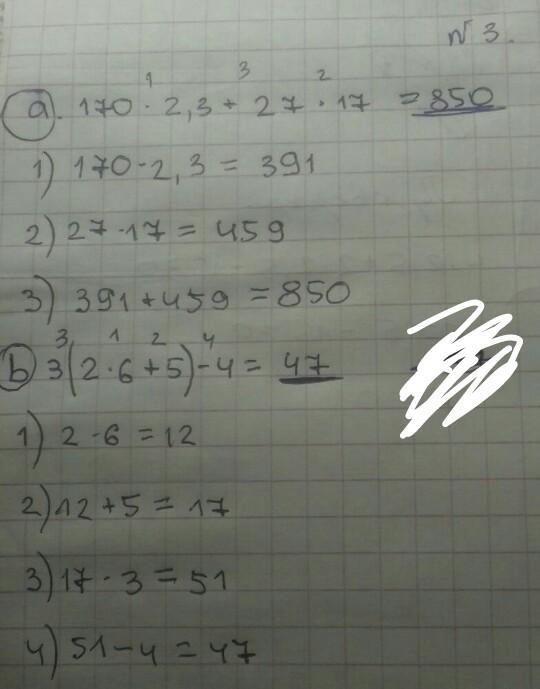 N 3.
1 3 2
a. 170 · 2,3 + 27 · 17 = 850
1) 170 · 2,3 = 391
2) 27 · 17 = 459
3) 391 + 459 = 850
3 1 2 4
b) 3(2 · 6 + 5) - 4 = 47
1) 2 · 6 = 12
2) 12 + 5 = 17
3) 17 · 3 = 51
4) 51 - 4 = 47